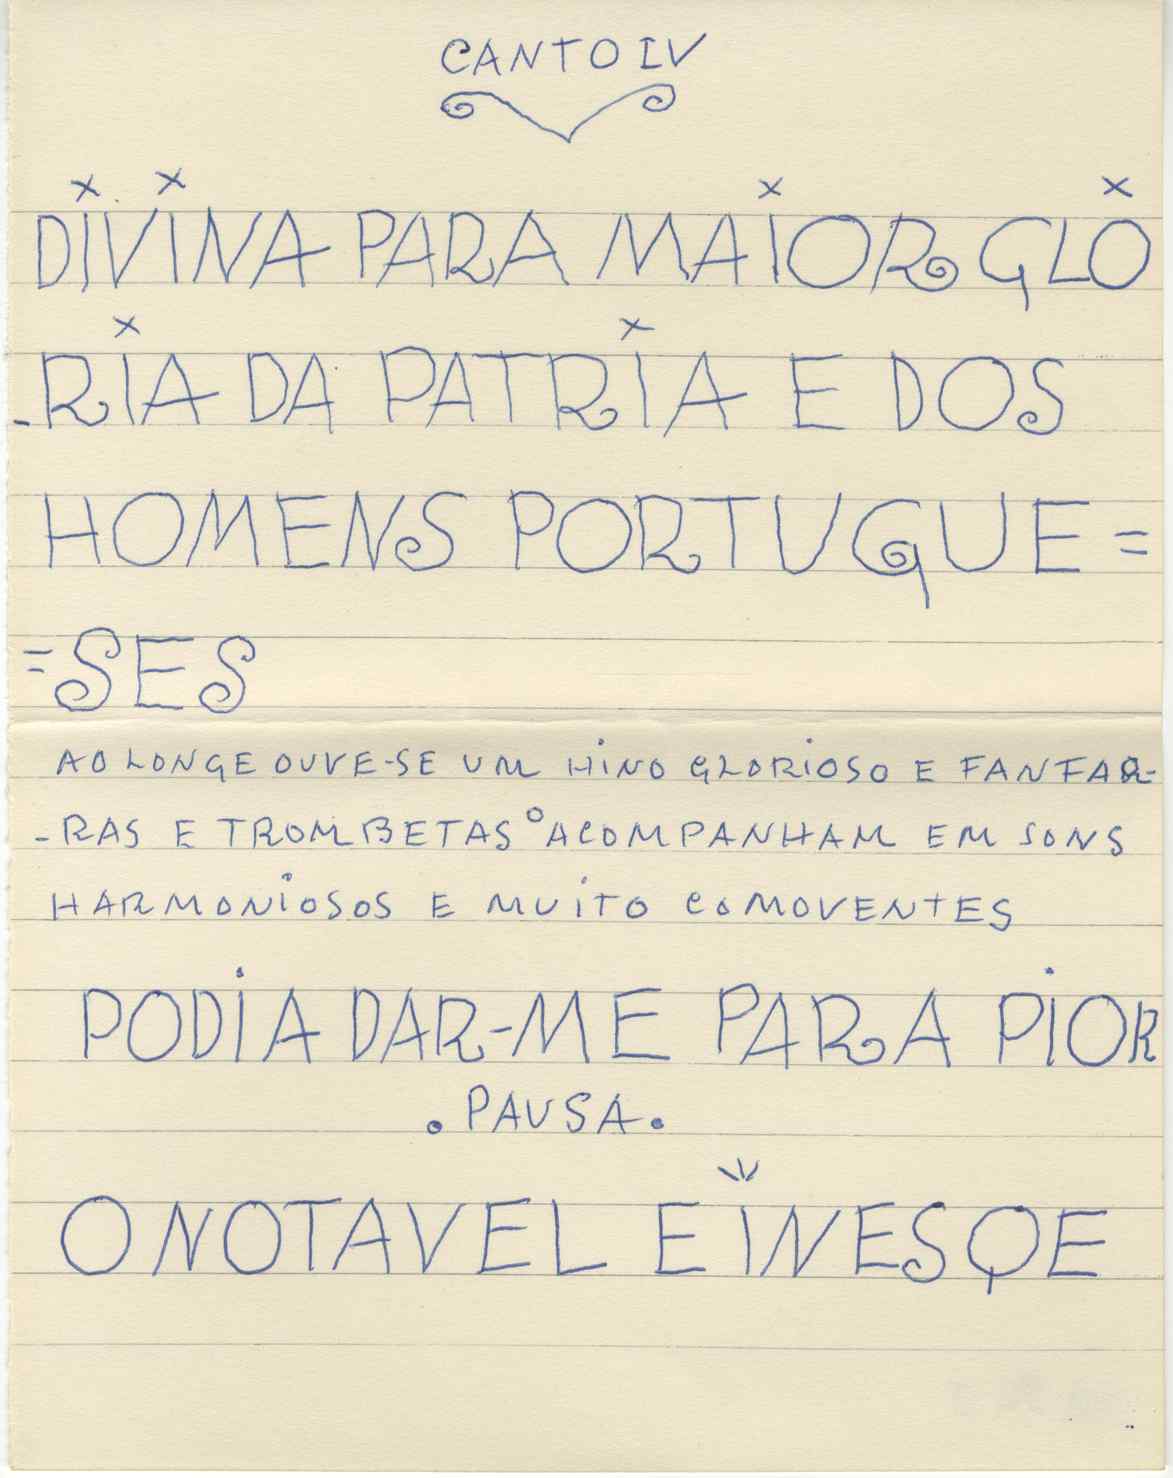 CANTO IV
DIVINA PARA MAIOR GLO
-RIA DA PATRIA E DOS
HOMENS PORTUGUE=
=SES
AO LONGE OUVE-SE UM HINO GLORIOSO E FANFAR-
-RAS E TROMBETAS O ACOMPANHAM EM SONS
HARMONIOSOS E MUITO COMOVENTES
PODIA DAR-ME PARA PIOR
. PAUSA .
O NOTAVEL E INESQE